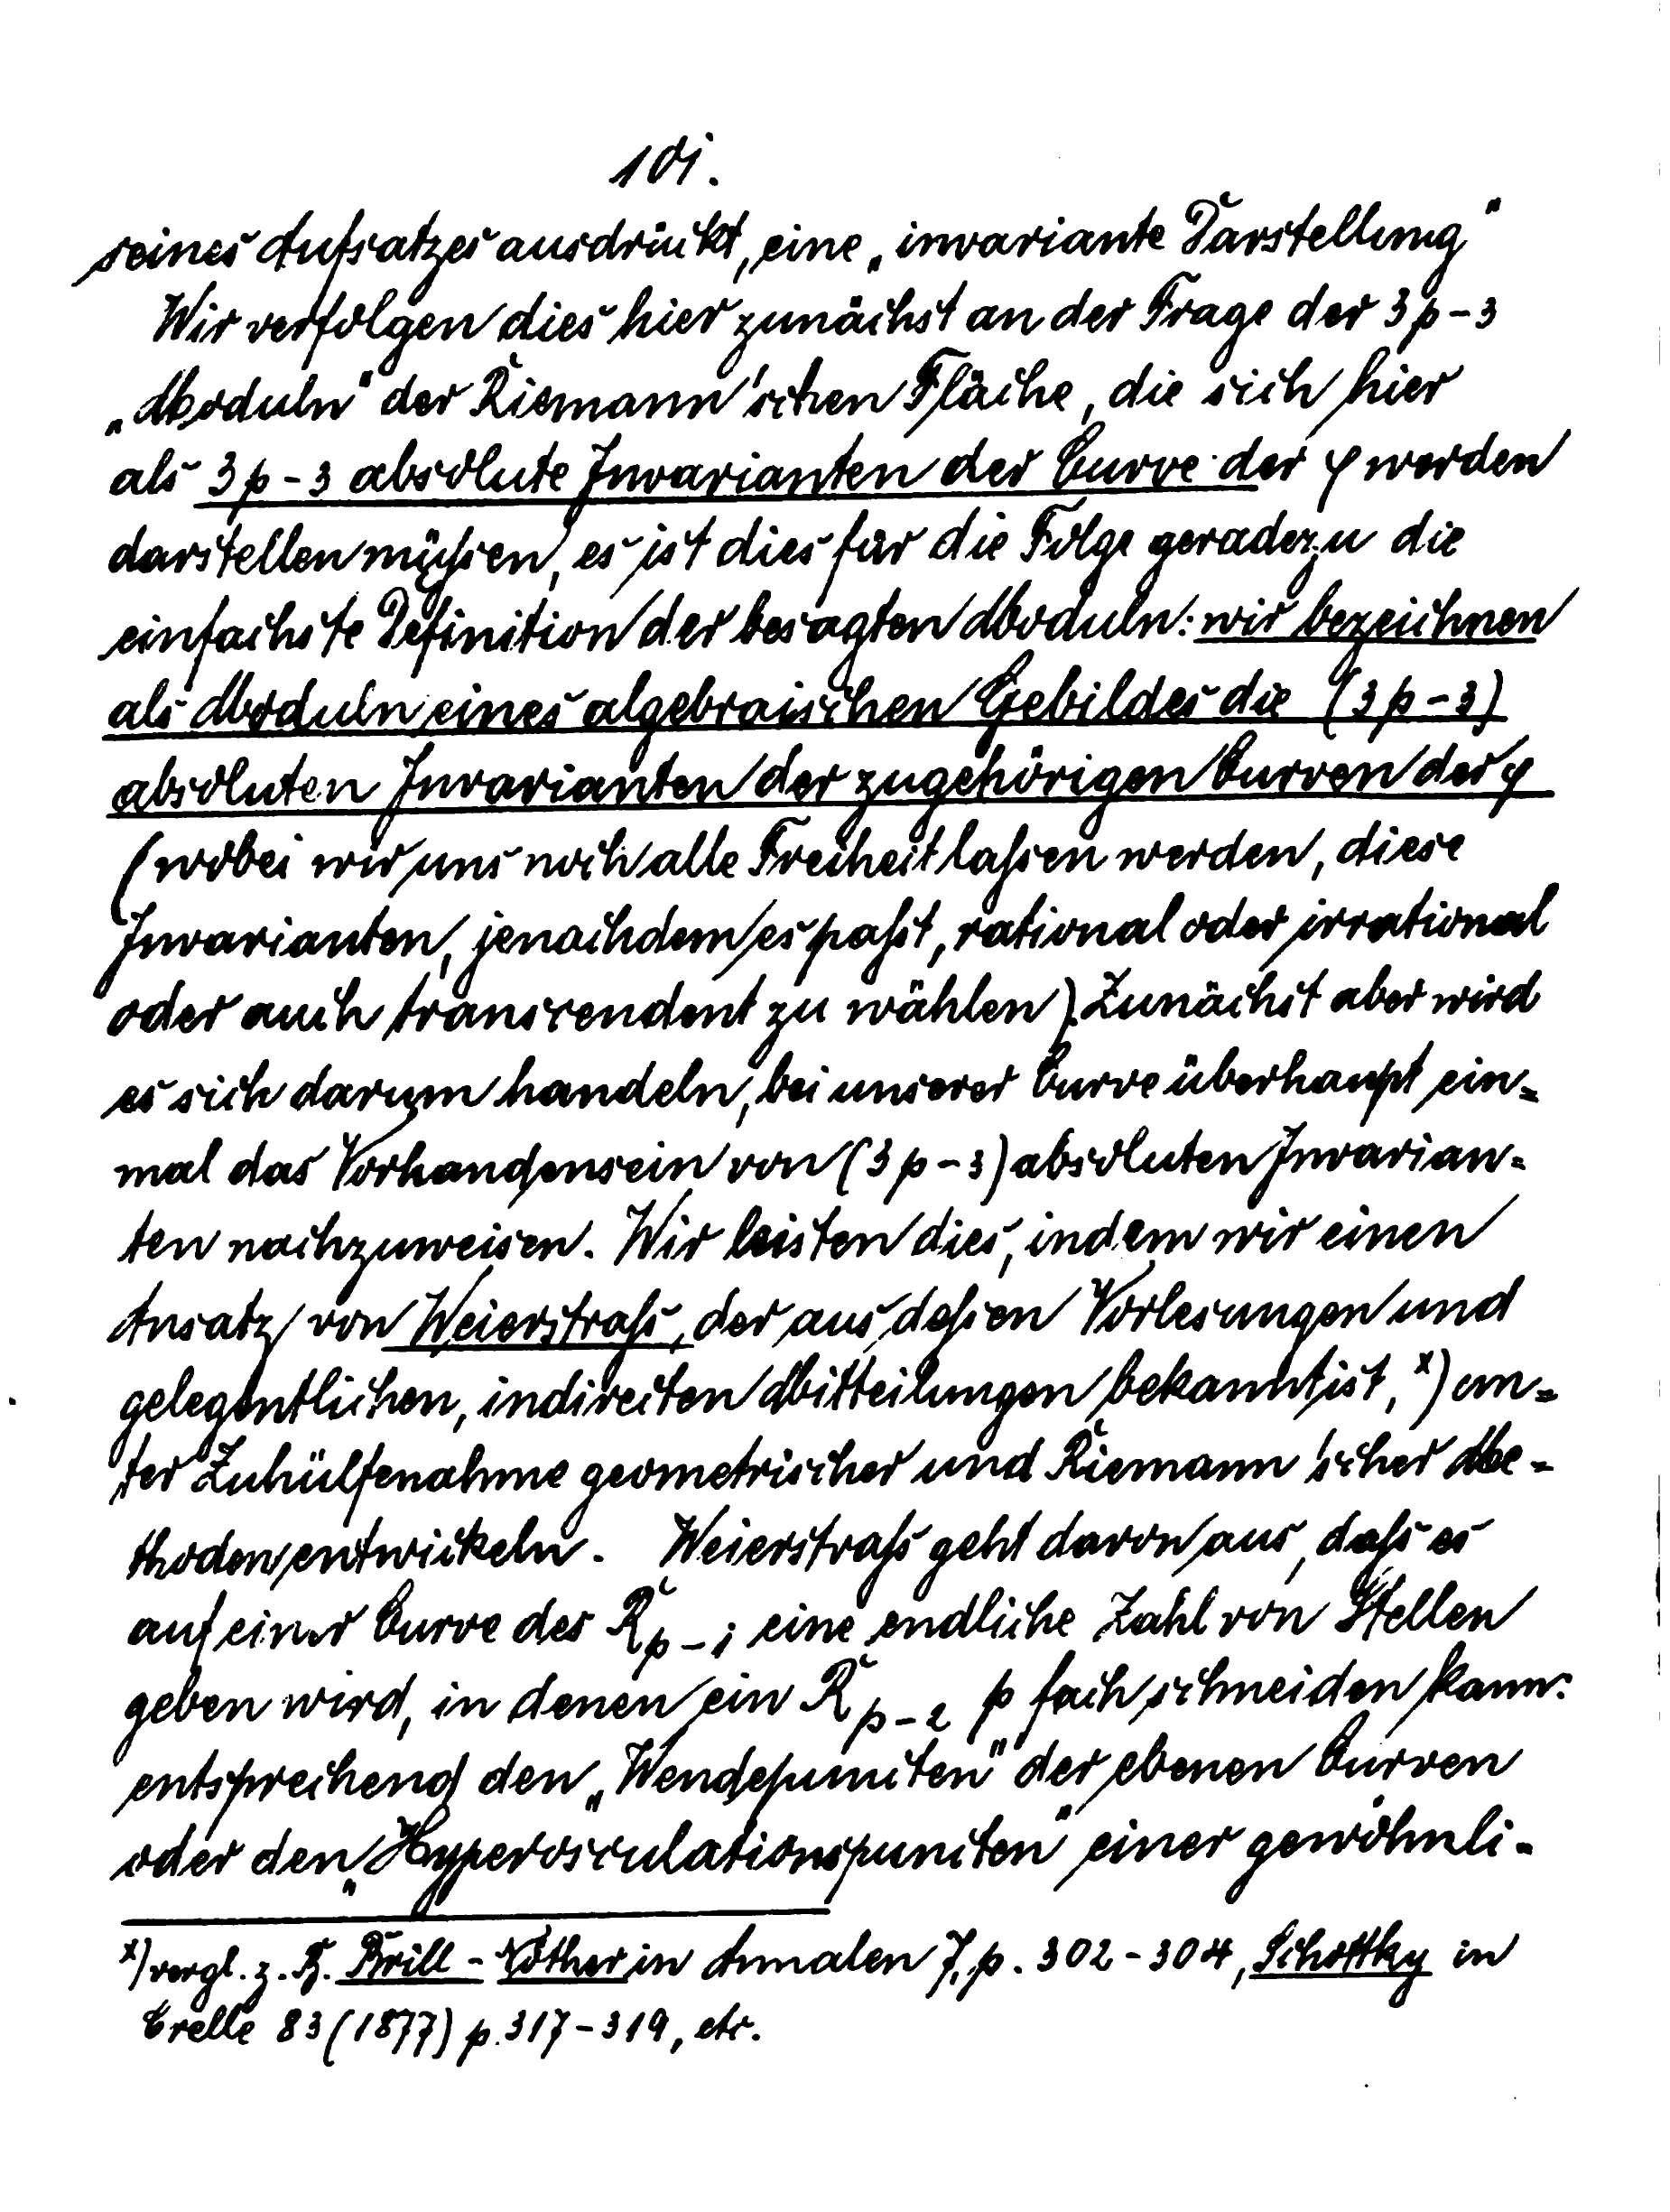 101.
seines Aufsatzes ausdrückt, eine „invariante Darstellung"
Wir verfolgen dies hier zunächst an der Frage der 3p-3
„Moduln" der Riemann'schen Fläche, die sich hier
als 3p-3 absolute Invarianten der Curve der φ werden
darstellen müssen, es ist dies für die Folge geradezu die
einfachste Definition der besagten Moduln: wir bezeichnen
als Moduln eines algebraischen Gebildes die (3p-3)
absoluten Invarianten der zugehörigen Curven der φ
(wobei wir uns noch alle Freiheit lassen werden, diese
Invarianten, jenachdem es passt, rational oder irrational
oder auch transcendent zu wählen). Zunächst aber wird
es sich darum handeln, bei unserer Curve überhaupt ein-
mal das Vorhandensein von (3p-3) absoluten Invarian-
ten nachzuweisen. Wir leisten dies, indem wir einen
Ansatz von Weierstrass, der aus dessen Vorlesungen und
gelegentlichen, indirecten Mitteilungen bekannt ist, x) un-
ter Zuhülfenahme geometrischer und Riemann'scher Me-
thoden entwickeln. Weierstrass geht davon aus, dass es
auf einer Curve des R_{p-1} eine endliche Zahl von Stellen
geben wird, in denen ein R_{p-2} p fach schneiden kann:
entsprechend den „Wendepuncten" der ebenen Curven
oder den „Hyperosculationspuncten" einer gewöhnli-
x) vergl. z. B. Brill-Nöther in Annalen 7, p. 302-304, Schottky in
Crelle 83 (1877) p. 317-319, etc.